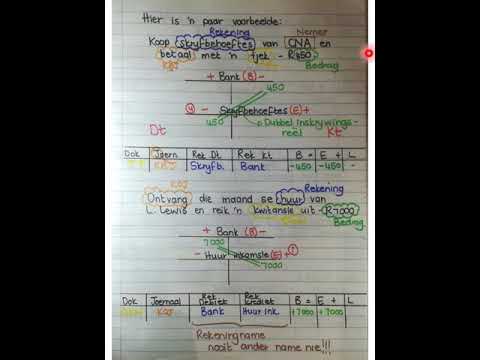 Hier is 'n paar voorbeelde:
Rekening Nemer
Koop skryfbehoeftes van CNA en
betaal met 'n tjek - R450
KBJ Bedrag
+ Bank (B) -
450
④ - Skryfbehoeftes (E) +
450 Dubbel inskrywings-
reël
Dt Kt
Dok Joern. Rek Dt Rek kt B = E + L
KBJ Skryfb. Bank -450 -450 -
KOJ Rekening
Ontvang die maand se huur van
L. Lewis en reik 'n kwitansie uit - R7000
Bedrag
+ Bank (B) -
7000
- Huur inkomste (E) + ①
7000
Dok Joernaal Rek Debiet Rek Krediet B = E + L
KOJ Bank Huur Ink. +7000 +7000
Rekeningname
nooit ander name nie!!!